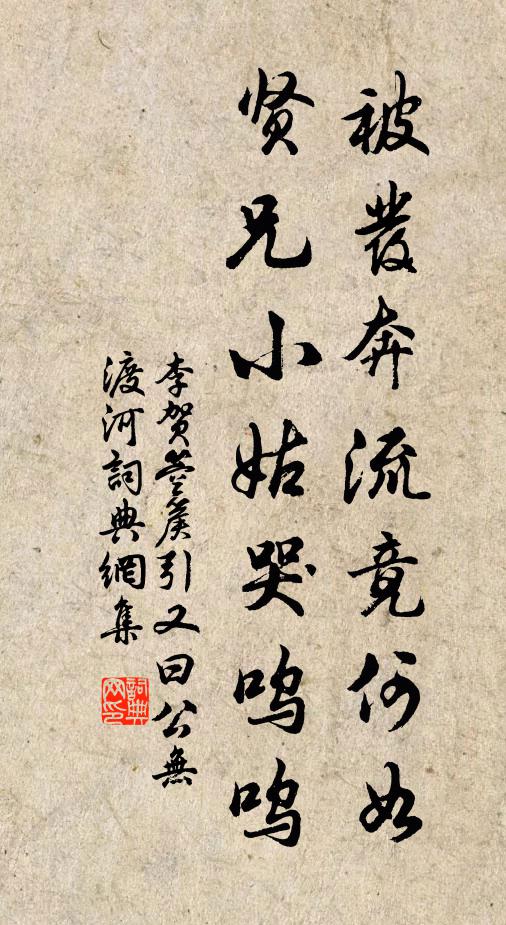 被發奔流竟何如
贤兄小姑哭呜呜
李贺箜篌引又曰公無
渡河詞典網集
詞典
网印